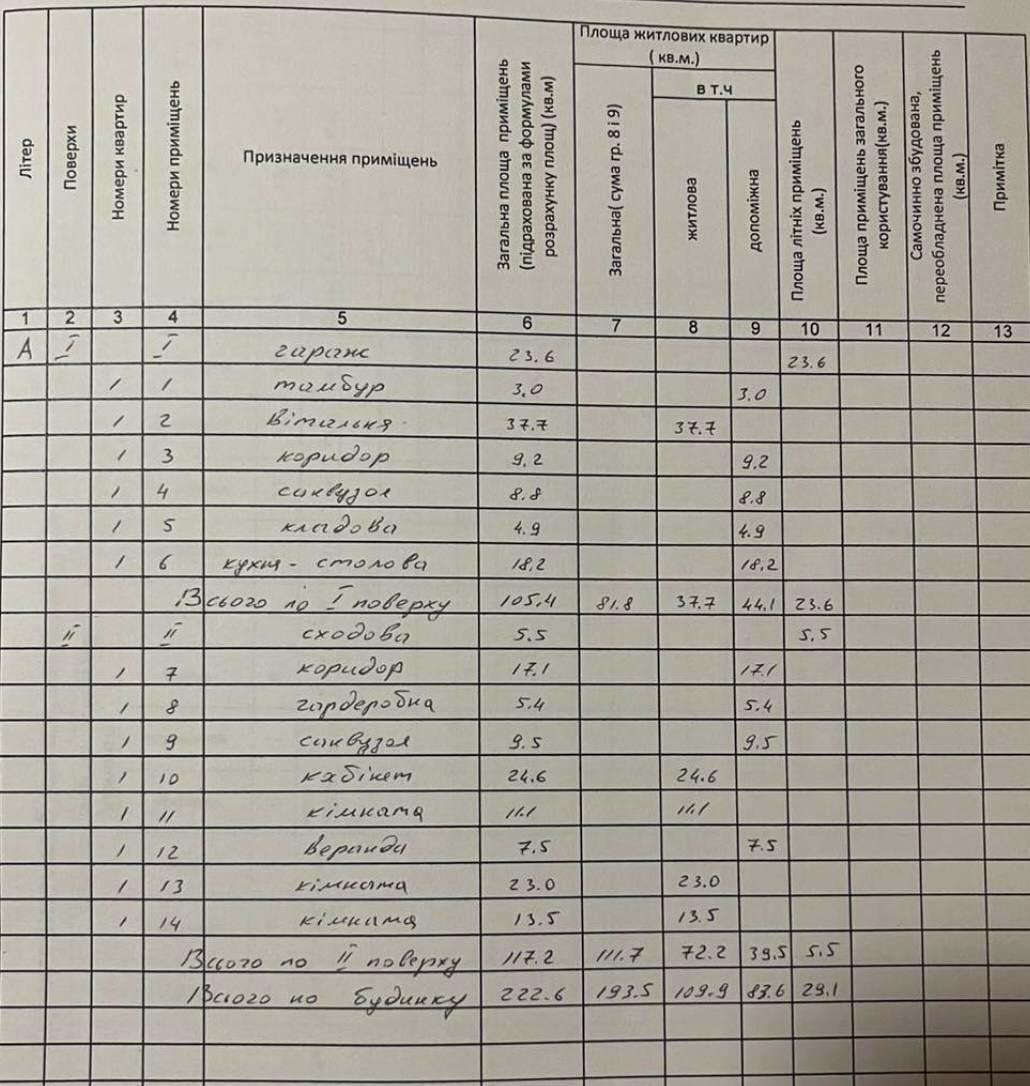 Літер
Поверхи
Номери квартир
Номери приміщень
Призначення приміщень
Загальна площа приміщень (підрахована за формулами розрахунку площ) (кв.м)
Площа житлових квартир ( кв.м.)
Загальна( сума гр. 8 і 9)
в т.ч
житлова
допоміжна
Площа літніх приміщень (кв.м.)
Площа приміщень загального користування(кв.м.)
Самочинно збудована, переобладнена площа приміщень (кв.м.)
Примітка
1 2 3 4 5 6 7 8 9 10 11 12 13
А І І гараж 23.6 23.6
1 1 тамбур 3.0 3.0
1 2 Вітальня 37.7 37.7
1 3 коридор 9.2 9.2
1 4 санвузол 8.8 8.8
1 5 кладова 4.9 4.9
1 6 кухня - столова 18.2 18.2
Всього по І поверху 105.4 81.8 37.7 44.1 23.6
ІІ ІІ сходова 5.5 5.5
1 7 коридор 17.1 17.1
1 8 гардеробна 5.4 5.4
1 9 санвузол 9.5 9.5
1 10 кабінет 24.6 24.6
1 11 кімната 11.1 11.1
1 12 веранда 7.5 7.5
1 13 кімната 23.0 23.0
1 14 кімната 13.5 13.5
Всього по ІІ поверху 117.2 111.7 72.2 39.5 5.5
Всього по будинку 222.6 193.5 109.9 83.6 29.1